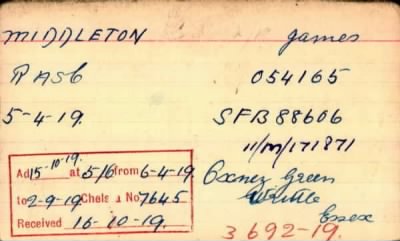 MIDDLETON James
RASC 054165
5-4-19. SFB88606
11/M/171871
Ad 15-10-19. at 5/6 from 6-4-19.
to 2-9-19. Chelsea No 7645
Received 16-10-19.
Oxney Green
Writtle
Essex
3692-19.